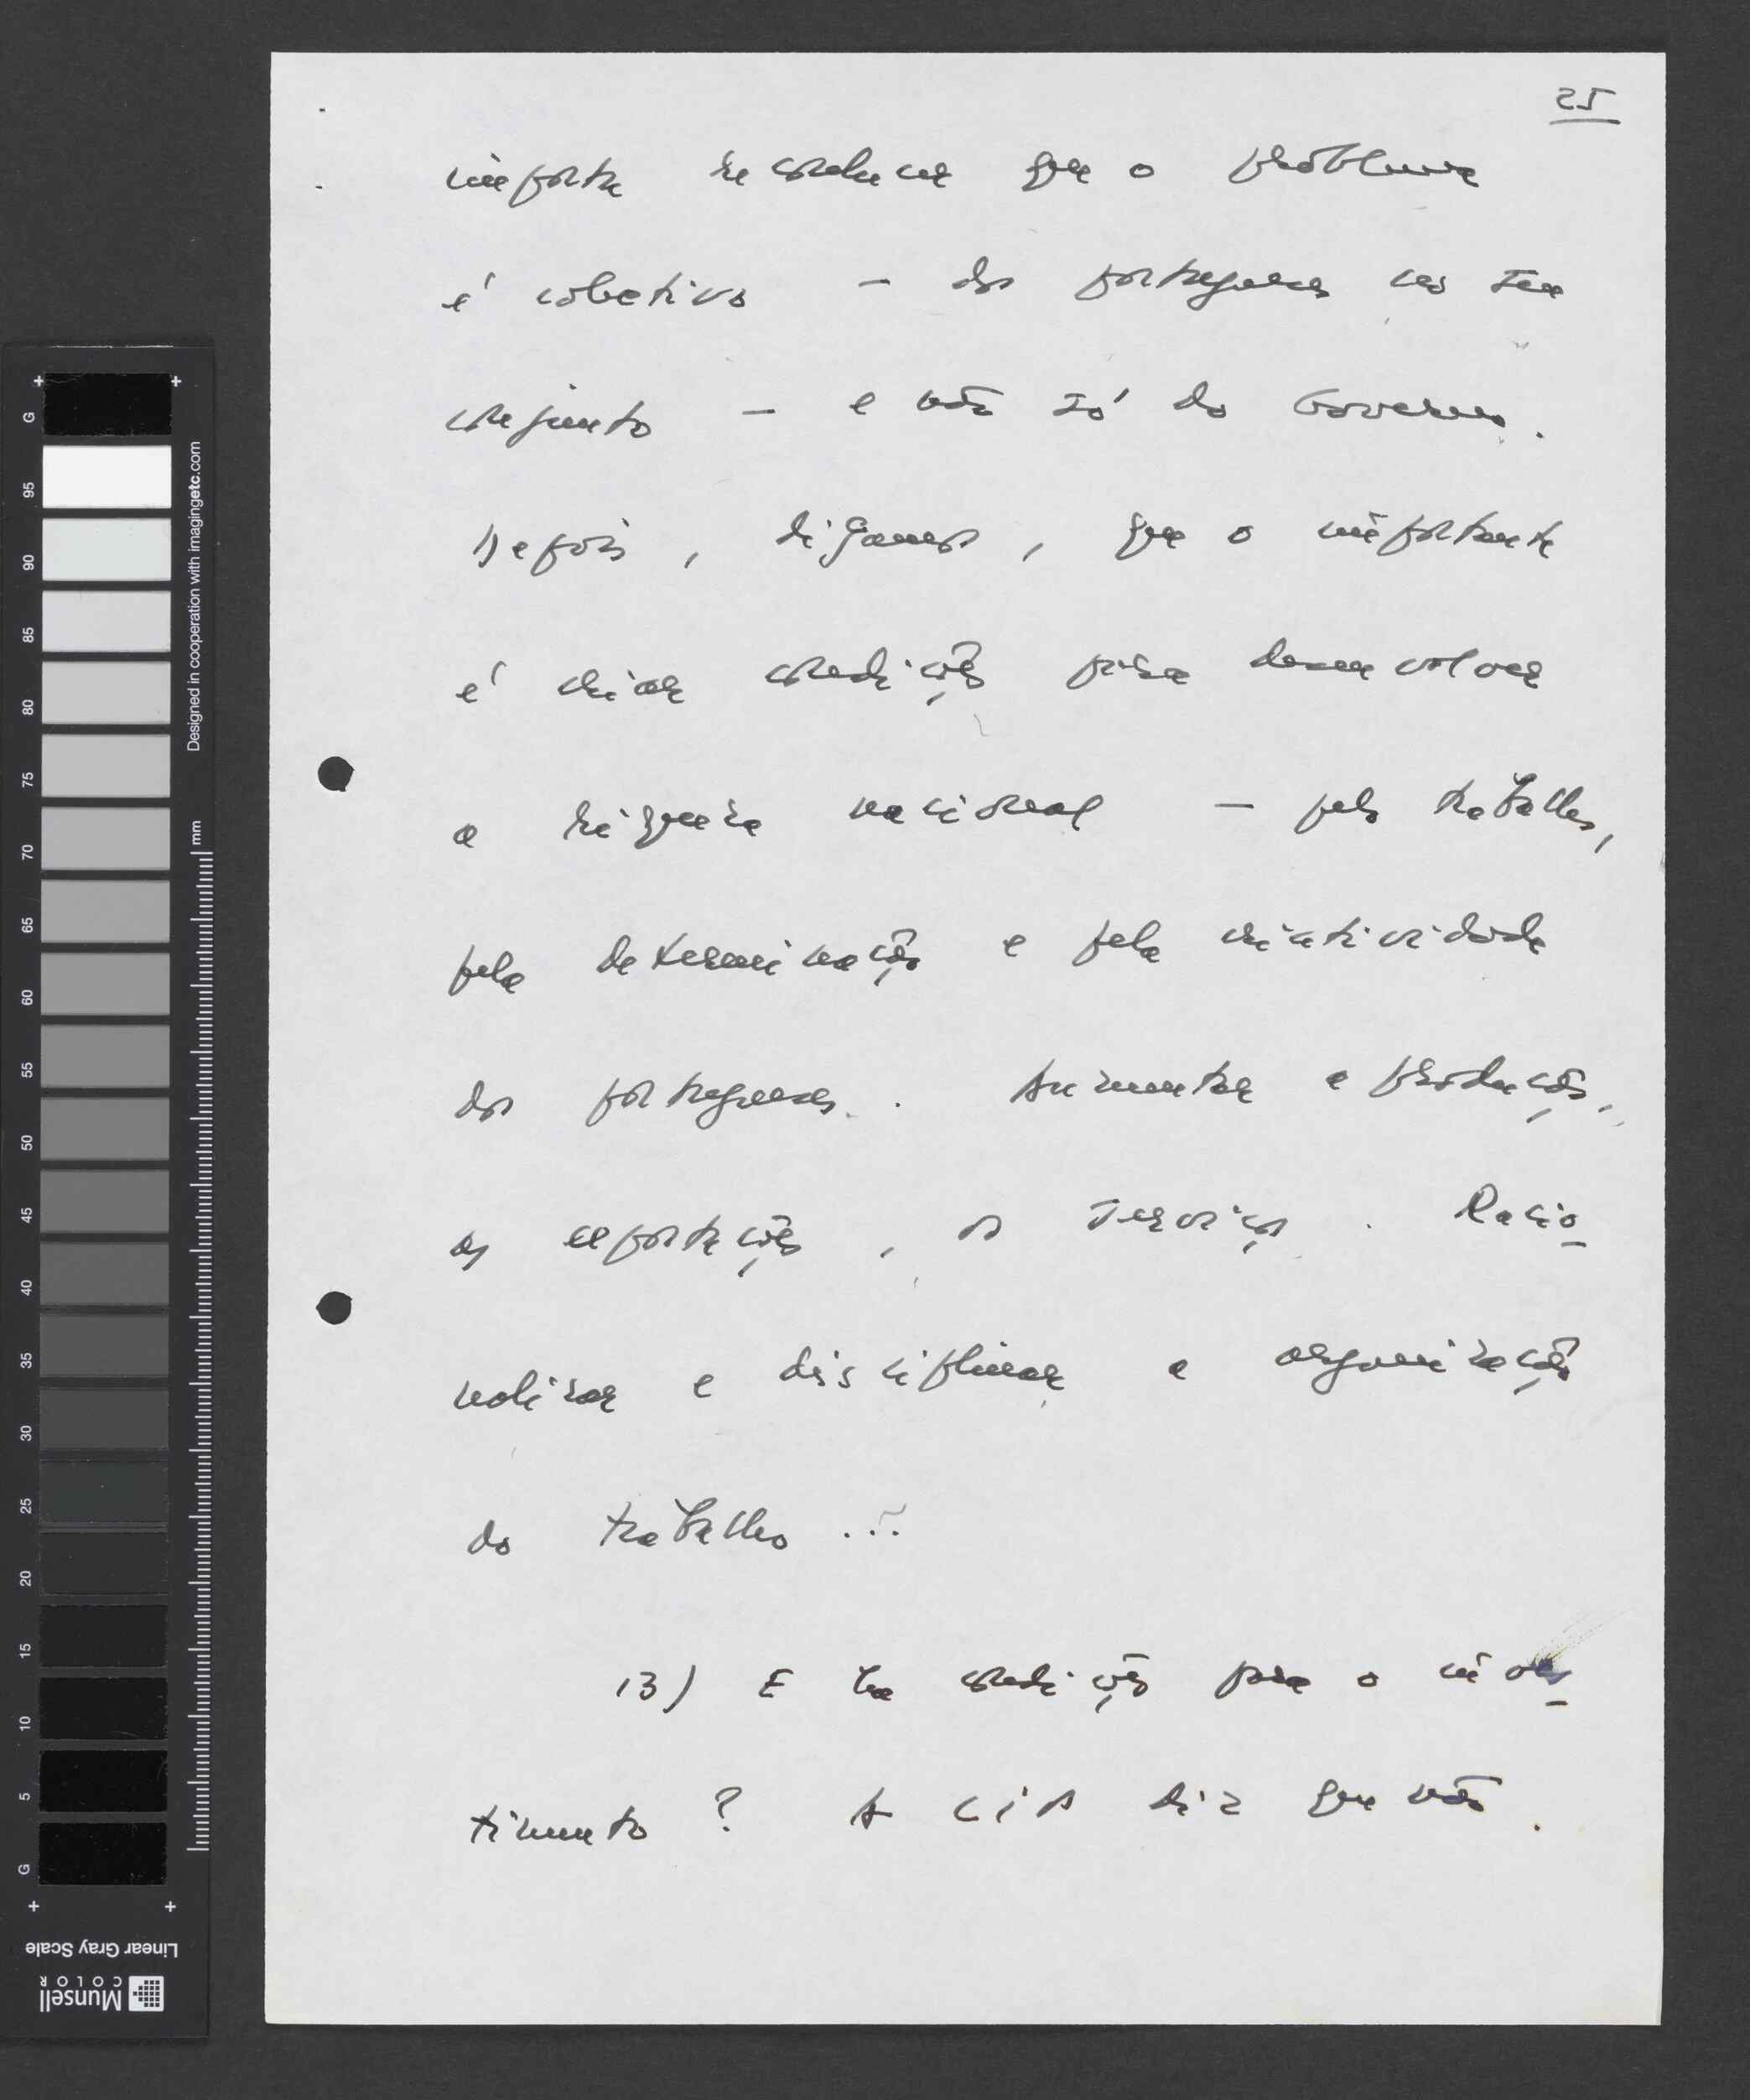 25
importa reconhecer que o problema
é colectivo — dos portugueses no seu
conjunto — e não só do Governo.
Depois, digamos, que o importante
é criar condições para desenvolver
a riqueza nacional — pelo trabalho,
pela determinação e pela criatividade
dos portugueses. Aumentar a produção,
as exportações, os serviços. Racio-
nalizar e disciplinar a organização
do trabalho...
13) E há condições para o inves-
timento? A CIP diz que não.
G
95
90
85
80
75
70
65
60
55
50
45
40
35
30
25
20
15
10
5
G
Designed in cooperation with imagingetc.com
mm
Linear Gray Scale
Munsell
COLOR